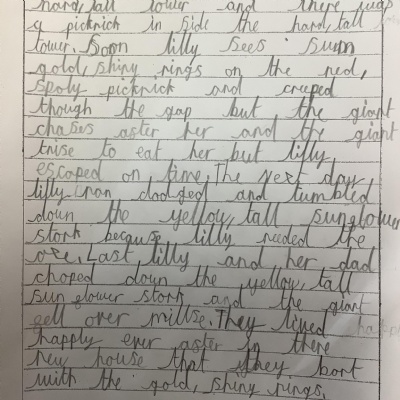 hard, tall tower and there was
a picknick in side the hard, tall
tower. Soon lilly sees sum
gold, shiny rings on the red,
spoty picknick and creped
though the gap but the giant
chases aster her and the giant
trise to eat her but lilly
escaped on time. The next day,
lilly ran dodged and tumbled
down the yellow, tall sunglower
stork because lilly needed the
axe. Last lilly and her dad
choped down the yellow, tall
sun glower stork and the giant
gell over millse. They lived
happly ever aster in there
new house that they bort
with the gold, shiny rings.